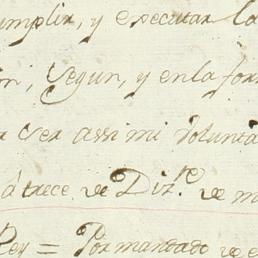 umplir, y executar la
in, segun, y en la for
r ser assi mi volunta
á trece de Diz.re de m
Rey = Por mandado de e